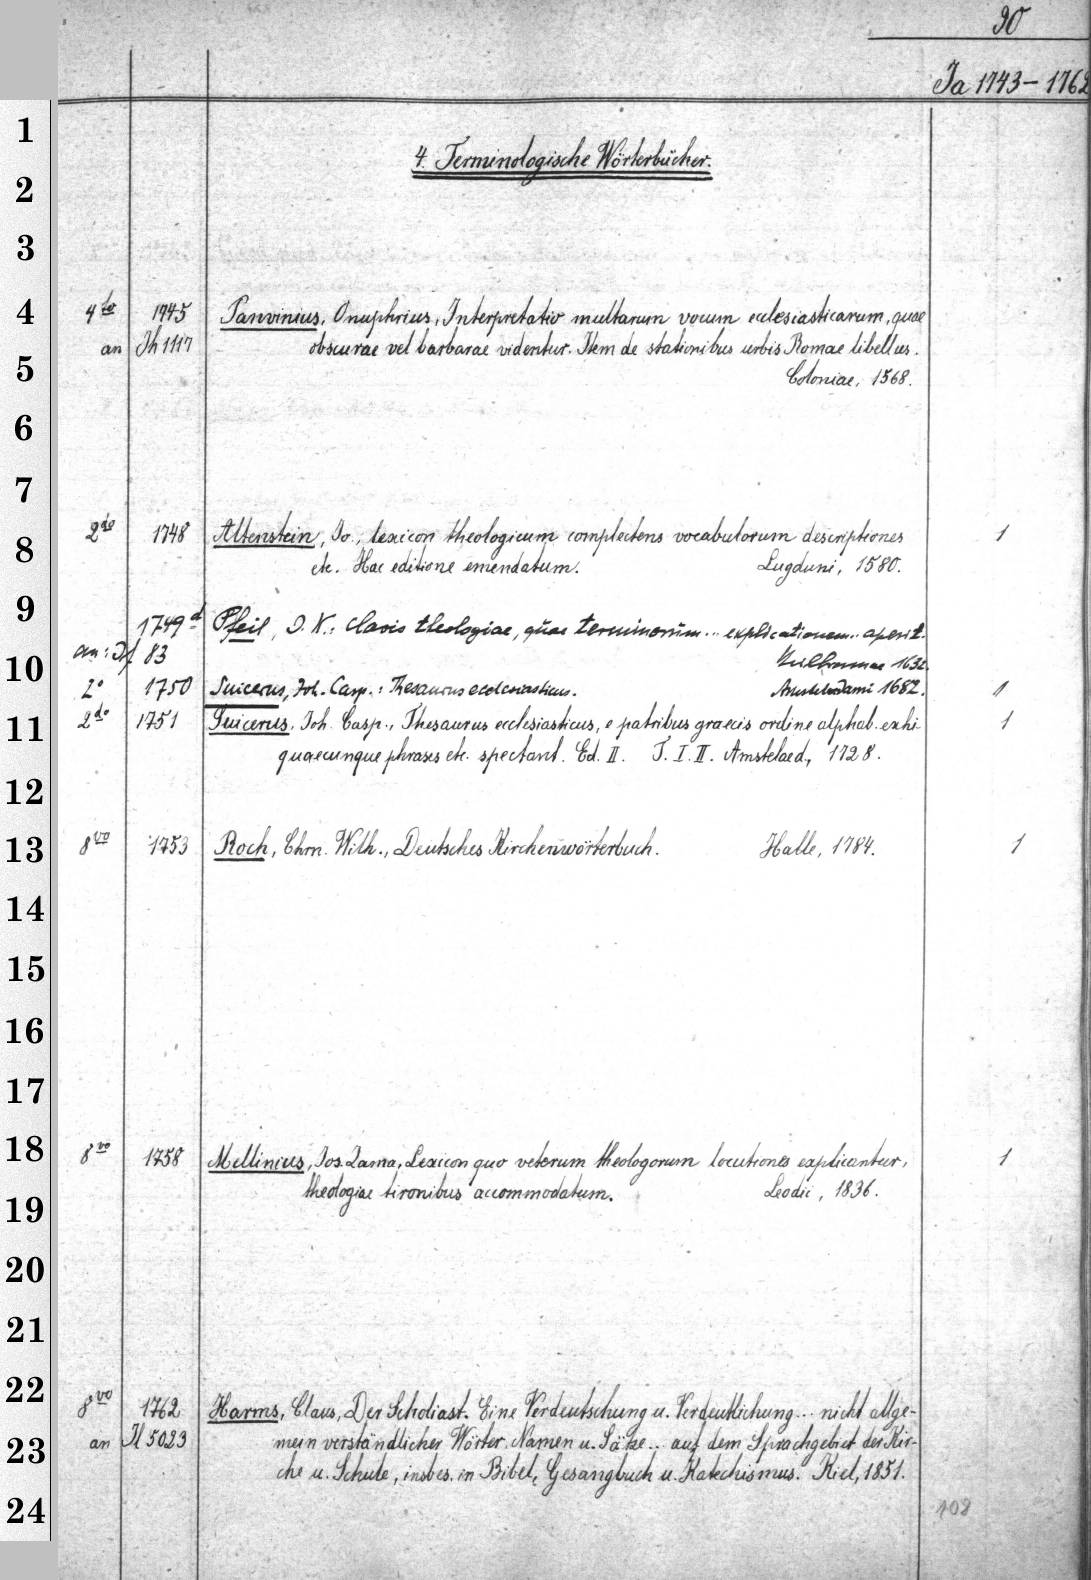 90
Ja 1743 – 1762
1
4. Terminologische Wörterbücher.
2
3
4
4to 1745 Panvinius, Onuphrius, Interpretatio multarum vocum ecclesiasticarum, quae
an Jh 1117 obscurae vel barbarae videntur. Item de stationibus urbis Romae libellus.
5
Coloniae, 1568.
6
7
2do 1748 Altenstein, Jo., lexicon theologicum complectens vocabulorum descriptiones 1
8
etc. Hac editione emendatum. Lugduni, 1580.
9
1749d Pfeil, J. K.: Clavis theologiae, quae terminorum... explicationem.. aperit.
an: Df 83 1632.
10
2o 1750 Suicerus, Joh. Casp.: Thesaurus ecclesiasticus. Amstelodami 1682. 1
2do 1751 Suicerus, Joh. Casp., Thesaurus ecclesiasticus, e patribus graecis ordine alphab. exhi- 1
11
quaecunque phrases etc. spectant. Ed. II. T. I. II. Amstelaed., 1728.
12
8vo 1753 Roch, Chrn. Wilh., Deutsches Kirchenwörterbuch. Halle, 1784. 1
13
14
15
16
17
18
8vo 1758 Mellinius, Jos. Zama, Lexicon quo veterum theologorum locutiones explicantur, 1
theologiae tironibus accommodatum. Leodii, 1836.
19
20
21
22
8vo 1762 Harms, Claus, Der Scholiast. Eine Verdeutschung u. Verdeutlichung... nicht allge-
an Jl 5023 mein verständlicher Wörter, Namen u. Sätze... auf dem Sprachgebiet der Kir-
23
che u. Schule, insbes. in Bibel, Gesangbuch u. Katechismus. Kiel, 1851.
24
108